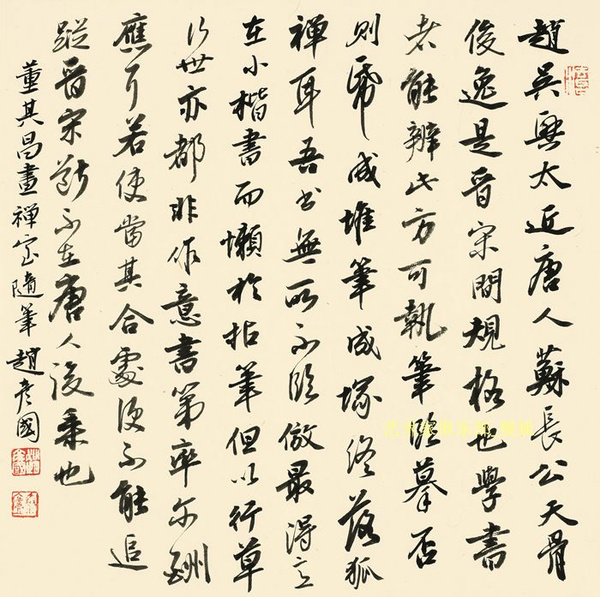 趙吳興太近唐人蘇長公天骨
俊逸是晉宋間規格也學書
者能辨此方可執筆臨摹否
則帋成堆筆成塚終落狐
禪耳吾書無所不臨倣最得意
在小楷書而懶於拈筆但以行草
行世亦都非作意書第率爾酬
應耳若使當其合處便不能追
蹤晉宋斷不在唐人後乘也
董其昌畫禪室隨筆趙彥國